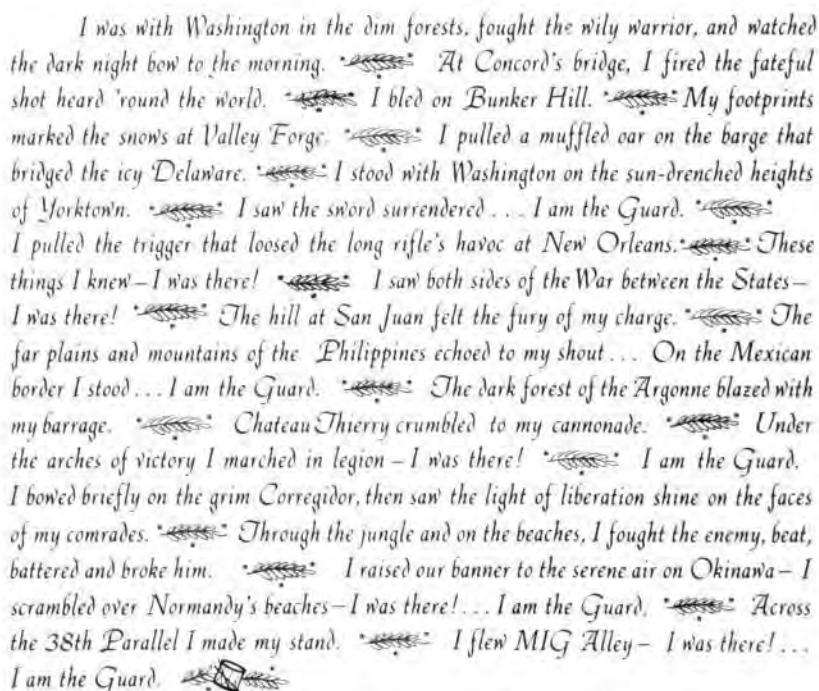 I was with Washington in the dim forests, fought the wily warrior, and watched
the dark night bow to the morning. At Concord's bridge, I fired the fateful
shot heard 'round the world. I bled on Bunker Hill. My footprints
marked the snows at Valley Forge. I pulled a muffled oar on the barge that
bridged the icy Delaware. I stood with Washington on the sun-drenched heights
of Yorktown. I saw the sword surrendered . . . I am the Guard.
I pulled the trigger that loosed the long rifle's havoc at New Orleans. These
things I knew – I was there! I saw both sides of the War between the States –
I was there! The hill at San Juan felt the fury of my charge. The
far plains and mountains of the Philippines echoed to my shout . . . On the Mexican
border I stood . . . I am the Guard. The dark forest of the Argonne blazed with
my barrage. Chateau Thierry crumbled to my cannonade. Under
the arches of victory I marched in legion – I was there! I am the Guard.
I bowed briefly on the grim Corregidor, then saw the light of liberation shine on the faces
of my comrades. Through the jungle and on the beaches, I fought the enemy, beat,
battered and broke him. I raised our banner to the serene air on Okinawa – I
scrambled over Normandy's beaches – I was there! . . . I am the Guard. Across
the 38th Parallel I made my stand. I flew MIG Alley – I was there! . . .
I am the Guard.